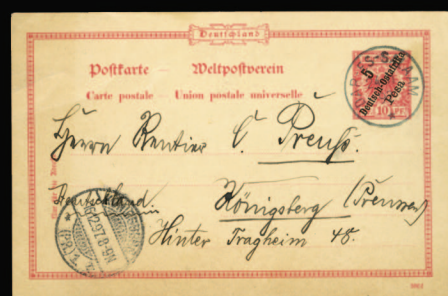 Deutschland
Postkarte Weltpostverein
Carte postale Union postale universelle
5
Deutsch-Ostafrika
Pesa
10 PF
DAR-ES-SALAAM
Herrn Rentier C. Preuß.
Deutschland. Königsberg (Preussen)
Hinter Tragheim 48.
KÖNIGSBERG
(PR.) 1.